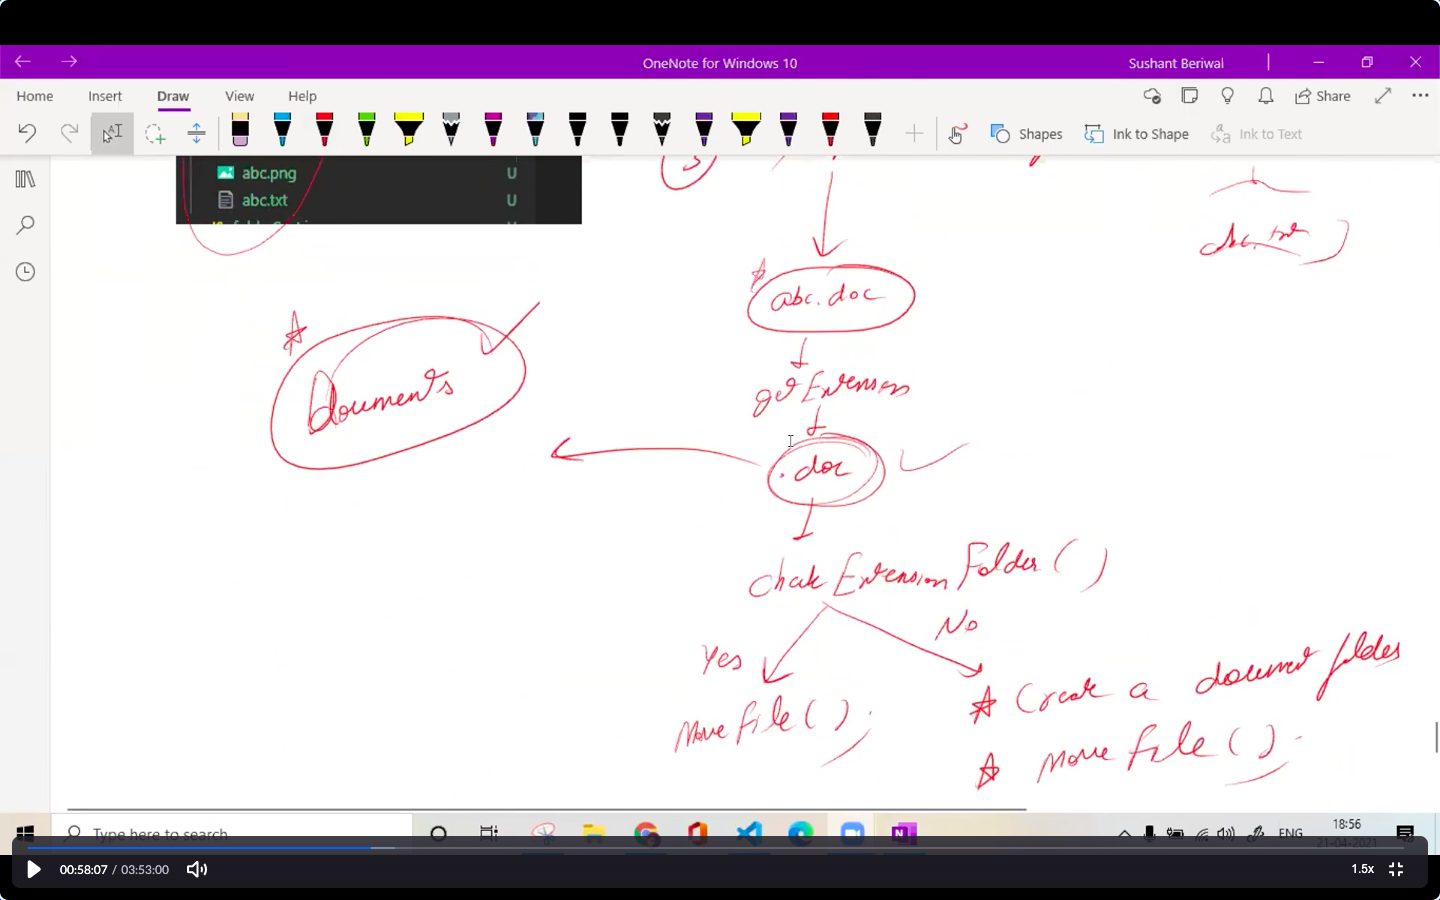 OneNote for Windows 10
Sushant Beriwal
Home Insert Draw View Help
Share
Shapes
Ink to Shape
Ink to Text
abc.png U
abc.txt U
abc.txt
abc.doc
Documents
getExtension
.doc
check Extension Folder ( )
No
Yes
Move file ( )
Create a document folder
move file ( )
Type here to search
ENG
18:56
21-04-2021
00:58:07 / 03:53:00
1.5x